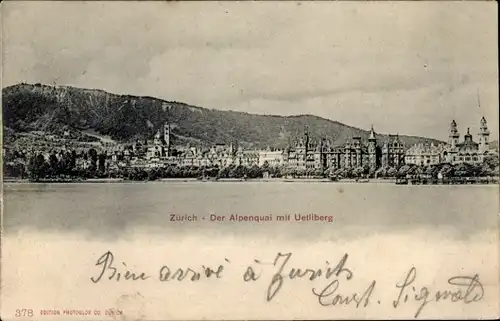 Zürich - Der Alpenquai mit Uetliberg
Bien arrivé à Zürich
Const. Sigwald
378 EDITION PHOTOGLOB CO. ZÜRICH